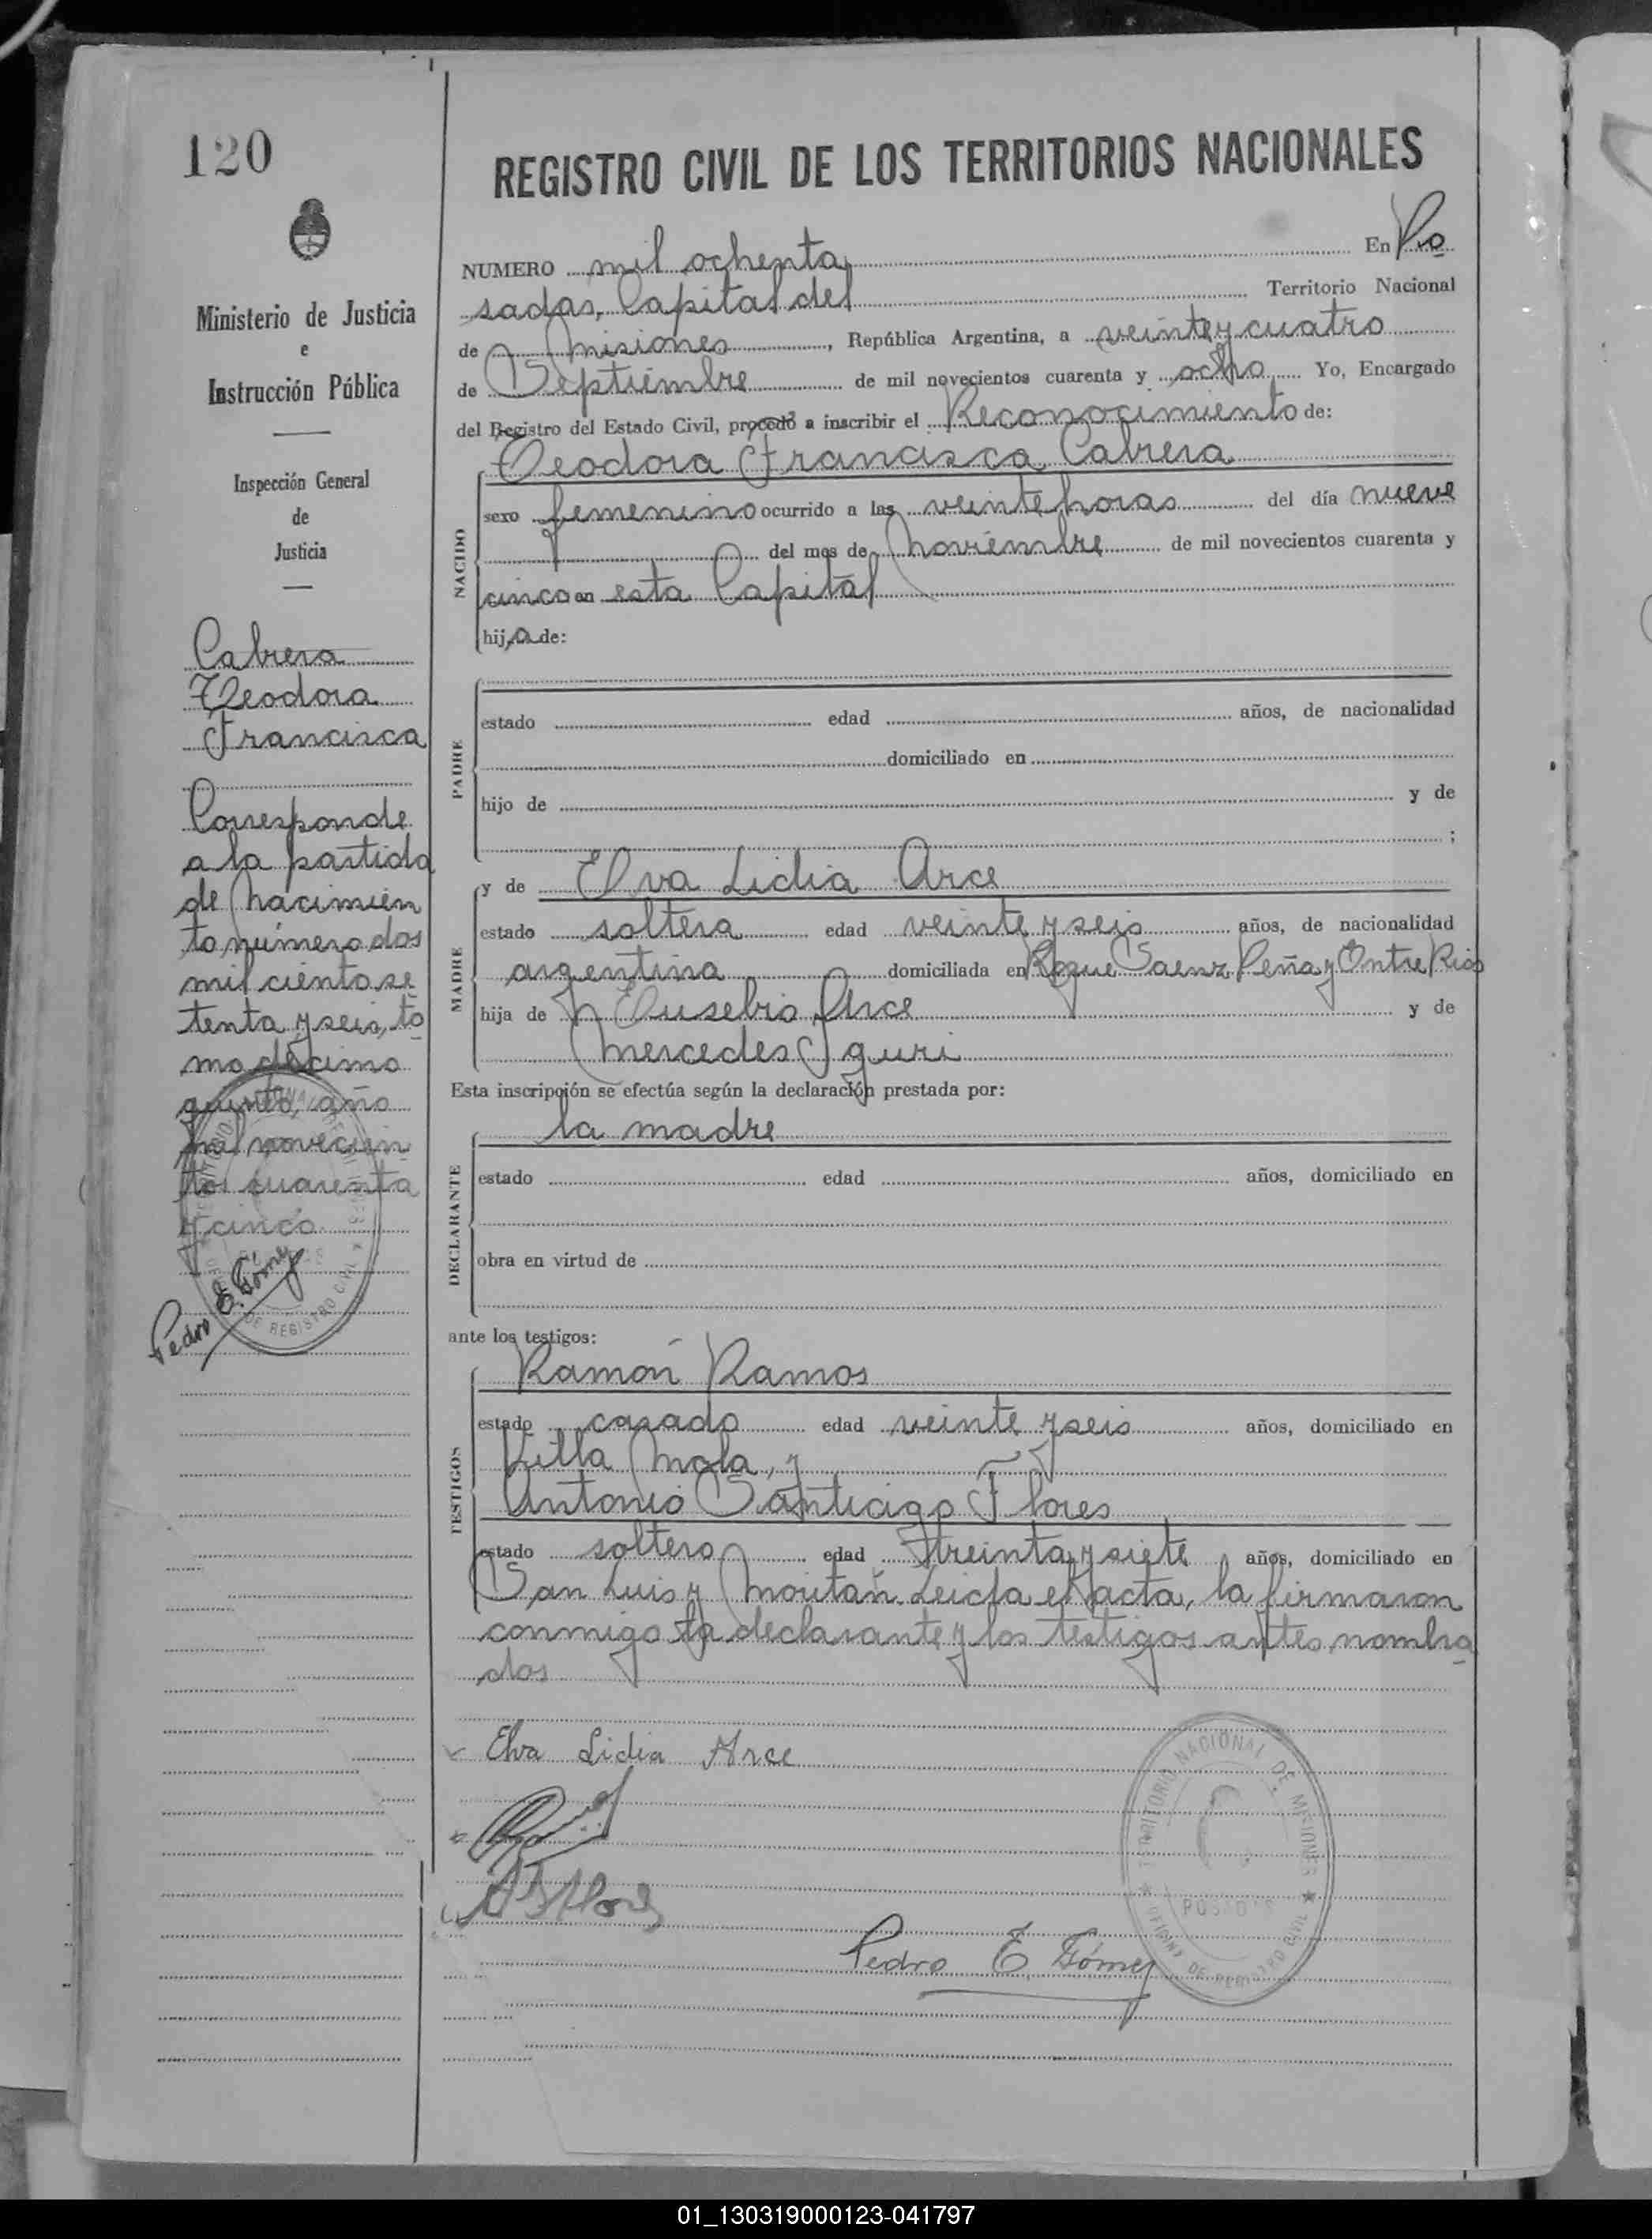 120
Ministerio de Justicia
e
Instrucción Pública
Inspección General
de
Justicia
Cabrera
Teodora
Francisca
Corresponde
a la partida
de nacimien
to número dos
mil ciento se
tenta y seis, to
mo décimo
quinto, año
mil novecien
tos cuarenta
y cinco
Pedro E. Gómez
REGISTRO CIVIL DE LOS TERRITORIOS NACIONALES
NUMERO mil ochenta En Po
sadas, Capital del Territorio Nacional
de Misiones, República Argentina, a veinte y cuatro
de Septiembre de mil novecientos cuarenta y ocho Yo, Encargado
del Registro del Estado Civil, procedo a inscribir el Reconocimiento de:
Teodora Francisca Cabrera
NACIDO
sexo femenino ocurrido a las veinte horas del día nueve
del mes de Noviembre de mil novecientos cuarenta y
cinco en esta Capital
hija de:
PADRE
estado edad años, de nacionalidad
domiciliado en
hijo de y de
;
MADRE
y de Elva Lidia Arce
estado soltera edad veinte y seis años, de nacionalidad
argentina domiciliada en Roque Saenz Peña y Entre Rios
hija de Eusebio Arce y de
Mercedes Yguri
Esta inscripción se efectúa según la declaración prestada por:
DECLARANTE
la madre
estado edad años, domiciliado en
obra en virtud de
ante los testigos:
TESTIGOS
Ramón Ramos
estado casado edad veinte y seis años, domiciliado en
Villa Mola, y
Antonio Santiago Flores
estado soltero edad treinta y siete años, domiciliado en
San Luis y Moritán. Leida el acta, la firmaron
conmigo la declarante y los testigos antes nombra
dos
Elva Lidia Arce
Pedro E. Gómez
TERRITORIO NACIONAL DE MISIONES
POSADAS
OFICINA DE REGISTRO CIVIL
01_130319000123-041797